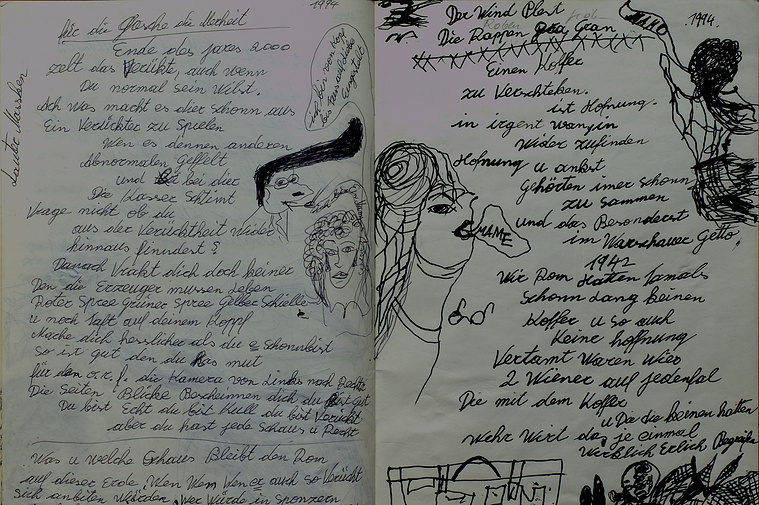 1994
für die Masche die Merheit
Ende des jares 2000
zelt das Verükte, auch wenn
Du normal sein wilst.
Ach was macht es dier schonn aus
Ein Verückter zu Spielen
Wen es dennen anderen
Abnormalen Gefellt
und bei dier
Die Klasser Schtint
Vrage nicht ob du
aus der Verücktheit wider
hinnaus finndest?
Danach Vrakt dich doch keiner
Den die Erzeuger mussen Leben
Roter Spree Grüner Spree Gelber Schielle
u noch Saft auf deinem Kopf
Mache dich hesslicher als du Schonnbist
so ist gut den du has mut
für den o.r.f. die Kamera von Links nach Rechts
Die Seiten Blicke Bescheinnen dich du Bist Gut
Du bist Echt du bist Kull du bist Verückt
aber du hast jede Schaus u Recht
Was u welche Schaus Bleibt den Rom
auf dieser Erde, Wen Wem Wener auch so Verückt
sich anbiten Würden, Wer Würde in Sponzern
Lauter Masschen
Der Wind Plest
Die Rappen Gran
1994.
Einen Koffer
zu Verschteken.
ist Hofnung.
in irgent wangin
wider zufinden
Hofnung u ankst
Gehörten imer schonn
zu sammen
und das Besonderst
im Warschauer Getto,
MAME
1942
Wir Rom Hatten Damals
Schonn Lang keinen
Koffer u so auch
keine hoffnung
Vertamt Waren Wier
2 Wiener auf jedenfal
Die mit dem Koffer
u Die die keinen hatten
Wehr Wirt das je einmal
Wirklich Erlich Begreifen